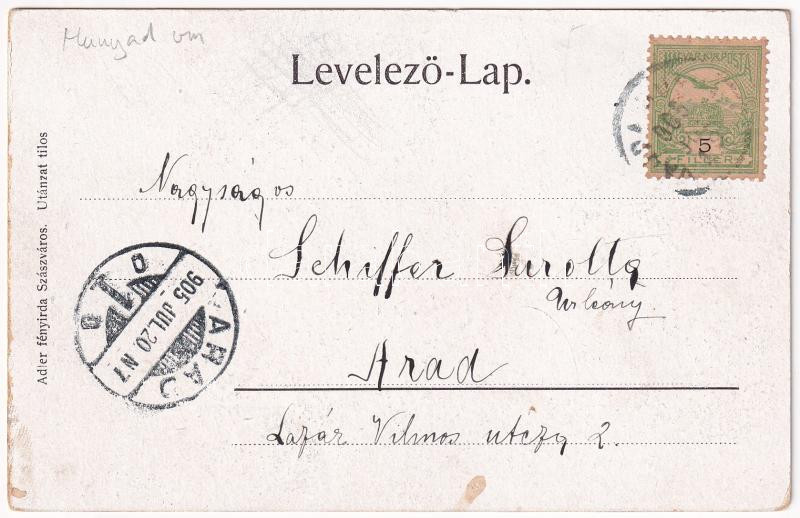 Hunyad vm
Levelező-Lap.
MAGYAR KIR. POSTA
5
FILLER
Nagyságos
Schiffer Sarolta
Urleány
Arad
Lázár Vilmos utcza 2.
ARAD
905 JUL. 20 N7
1
Adler fényirda Szászváros. Utánzat tilos